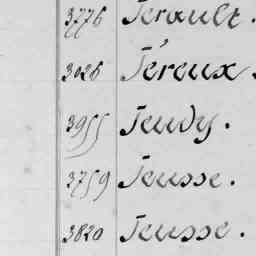 3776 Jerault.
3026 Jéreux.
3955 Jeudy.
2759 Jeusse.
3820 Jeusse.